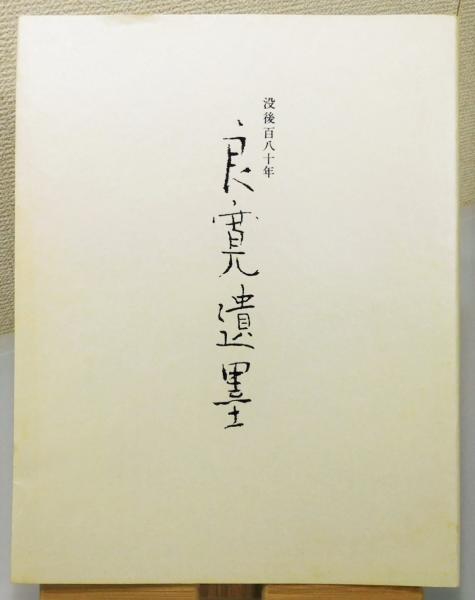 没後百八十年
良寛遺墨